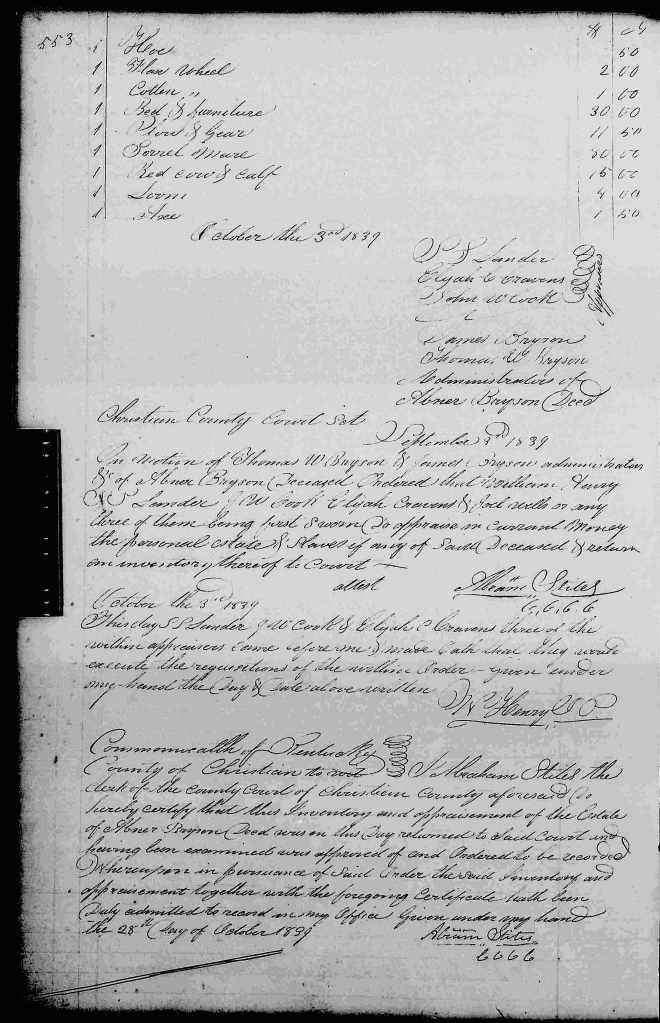 553
$ cts
1 Hoe 50
1 Flax Wheel 2 00
1 Cotton " 1 00
1 Bed & furniture 30 00
1 Plow & Gear 11 50
1 Sorrel Mare 50 00
1 Red cow & calf 15 00
1 Loom 4 00
1 Axe 1 50
October the 3rd 1839
S S Lander
Elijah C Cravens
John W Cook
Appraisers
James Bryson
Thomas W Bryson
Administrators of
Abner Bryson Decd
Christian County Court Sct
September 2nd 1839
On Motion of Thomas W Bryson & James Bryson administrators
&c of Abner Bryson Deceased Ordered that William Henry
S S Lander J W Cook Elijah Cravens & Joel Wells or any
three of them being first Sworn Do appraise in Currant Money
the personal estate & Slaves if any of Said Deceased & return
an inventory thereof to Court
attest Abram Stites
C.C.C.C
October the 3rd 1839
This day S S Lander J W Cook & Elijah C Cravens three of the
within appraisers came before me & made oath that they would
execute the requisitions of the within Order given under
my hand the Day & Date above written
Wm Henry J P
Commonwealth of Kentucky
County of Christian to wit I Abraham Stites the
clerk of the county Court of Christian County aforesaid Do
hereby certify that this Inventory and appraisement of the Estate
of Abner Bryson Decd was on this Day returned to Said Court and
having been examined was approved of and Ordered to be recorded
Whereupon in pursuance of Said Order the Said Inventory and
appraisement together with the foregoing Certificate hath been
Duly admitted to record in my Office Given under my hand
the 28th Day of October 1839
Abram Stites
C C C C